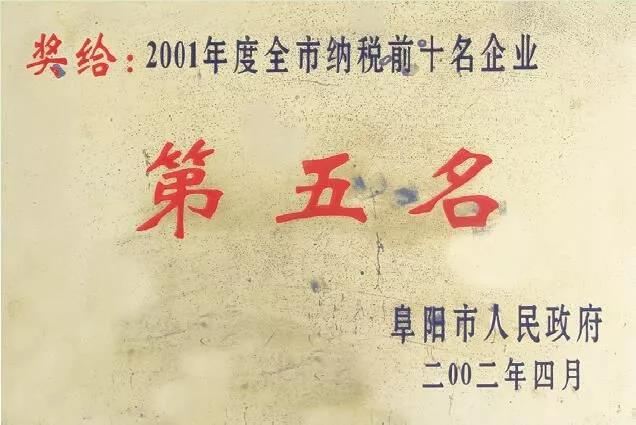 奖给：2001年度全市纳税前十名企业
第五名
阜阳市人民政府
二00二年四月